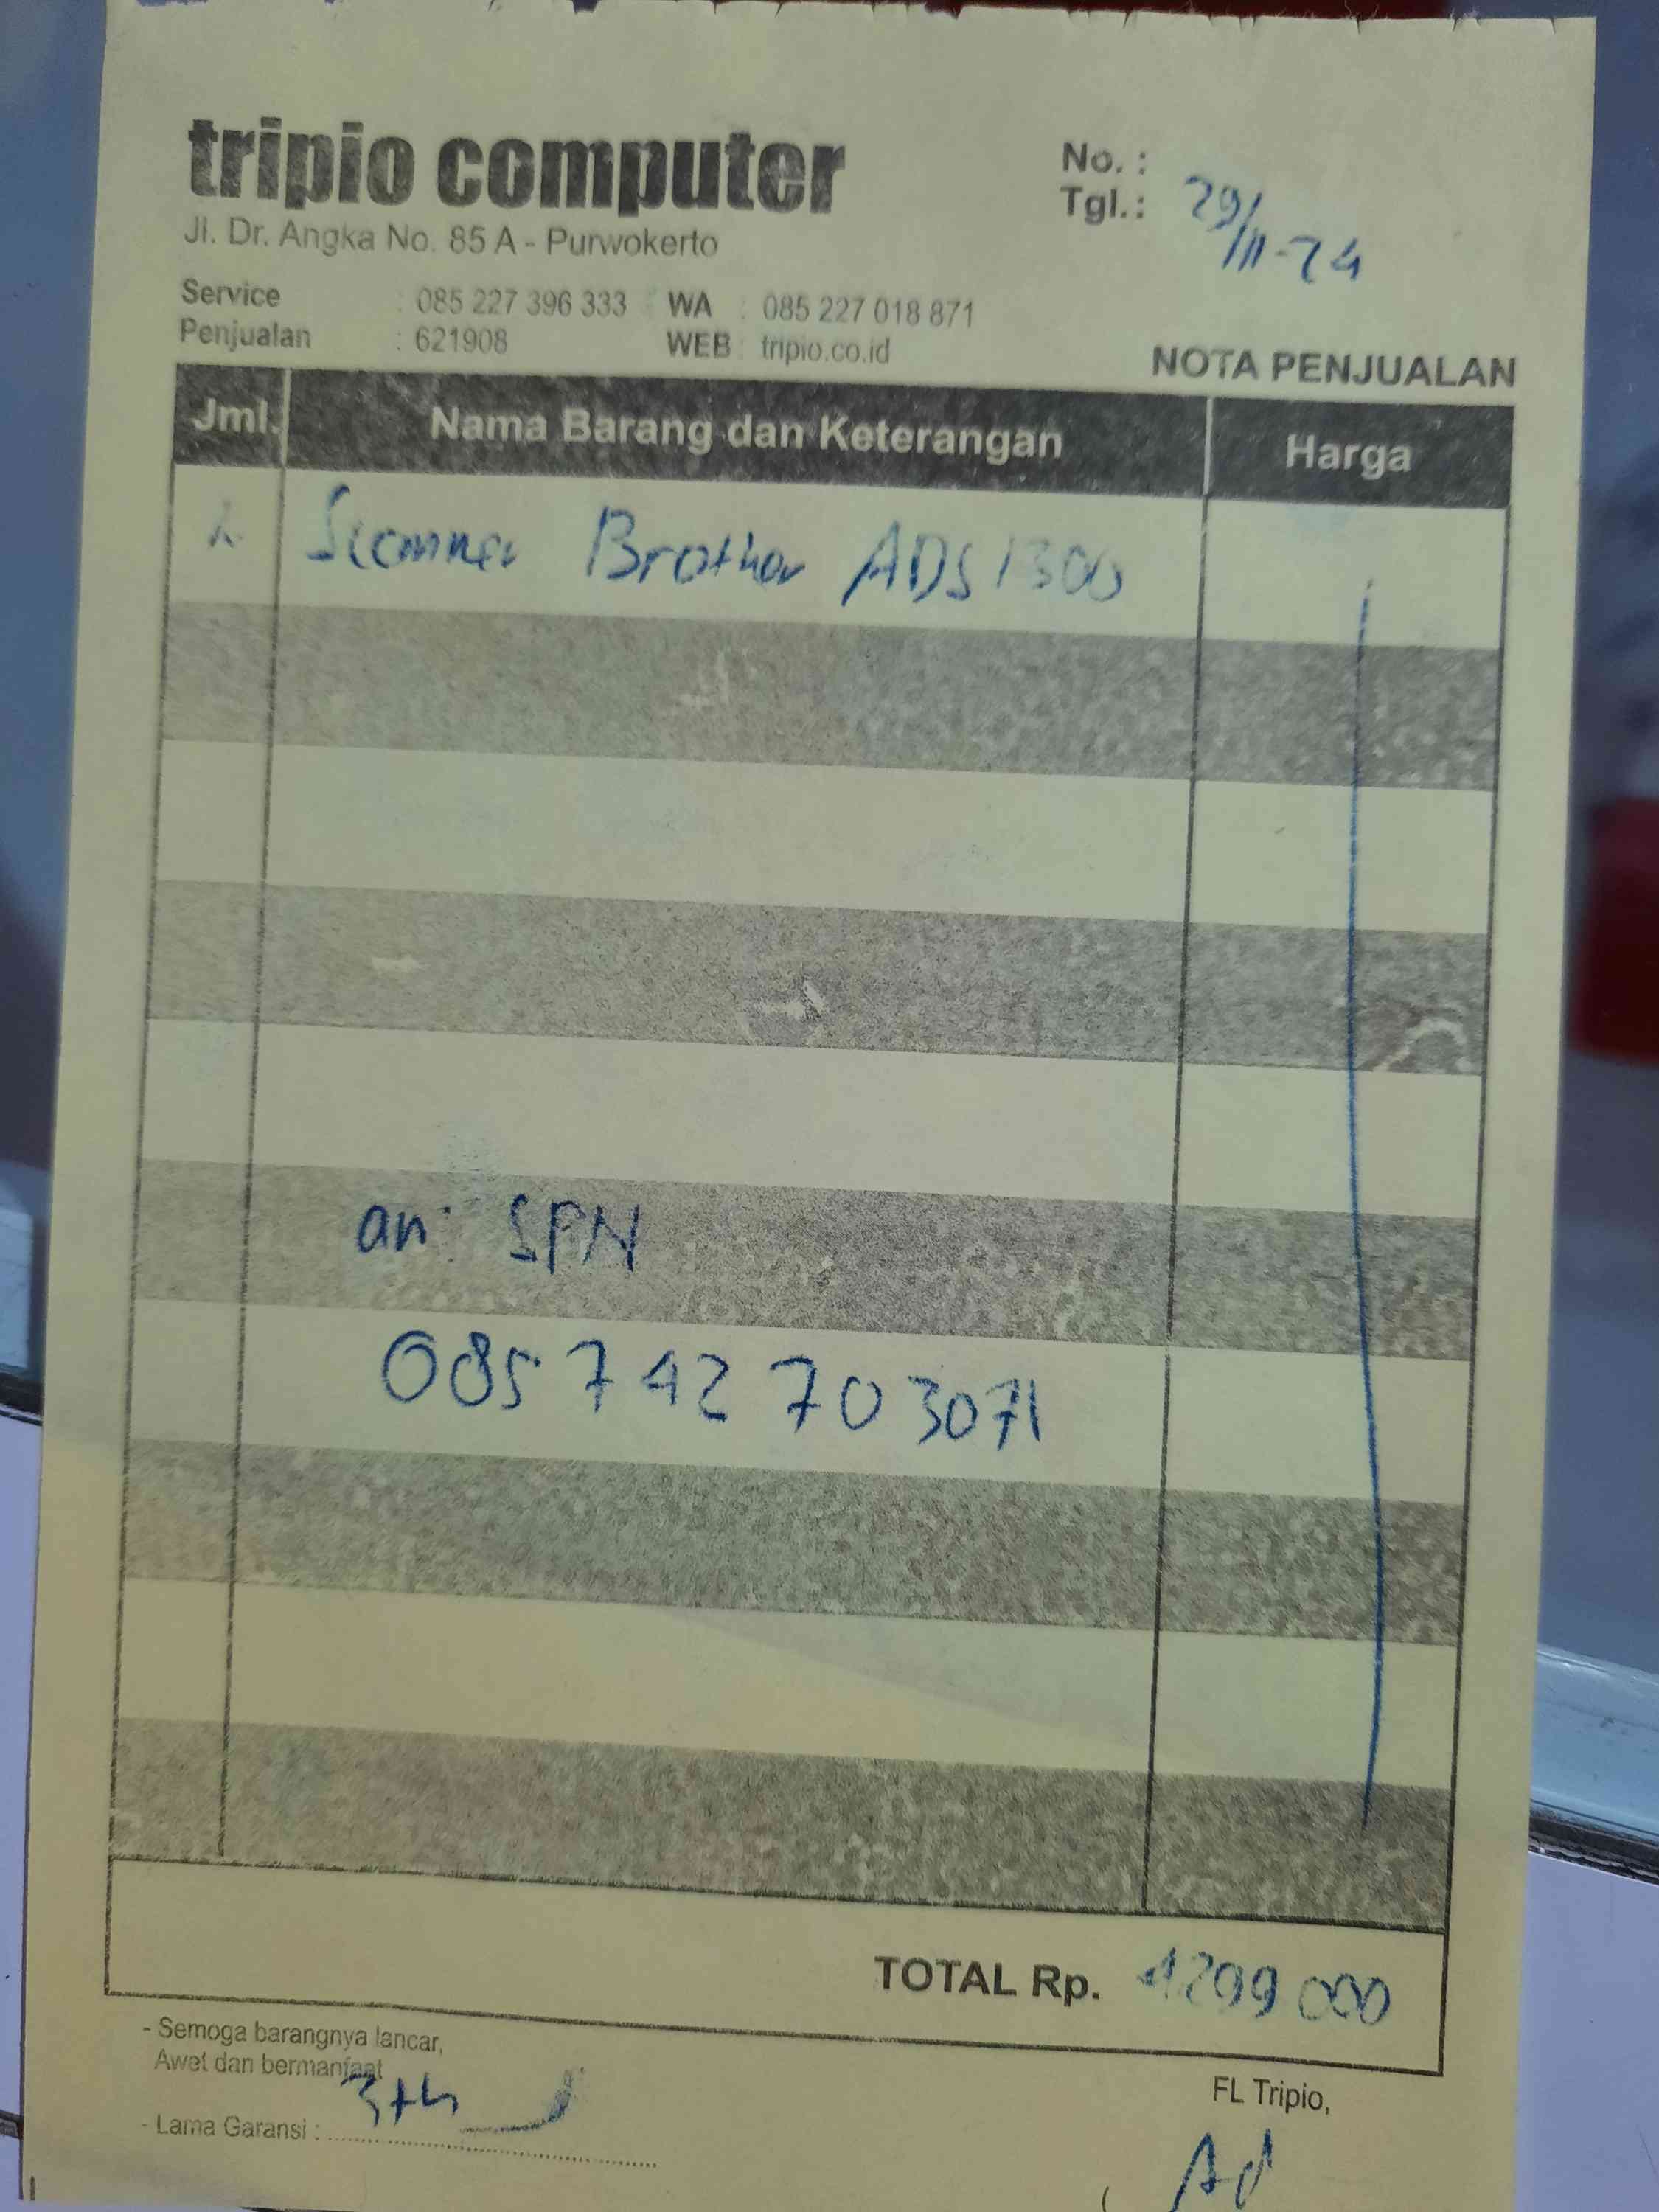 tripio computer
Jl. Dr. Angka No. 85 A - Purwokerto
No. :
Tgl. : 29/11-24
Service : 085 227 396 333 WA : 085 227 018 871
Penjualan : 621908 WEB : tripio.co.id
NOTA PENJUALAN
Jml. Nama Barang dan Keterangan Harga
Scanner Brother ADS 1300
an: SPN
085742703071
TOTAL Rp. 4299 000
- Semoga barangnya lancar,
Awet dan bermanfaat
- Lama Garansi : 3th
FL Tripio,
Ad